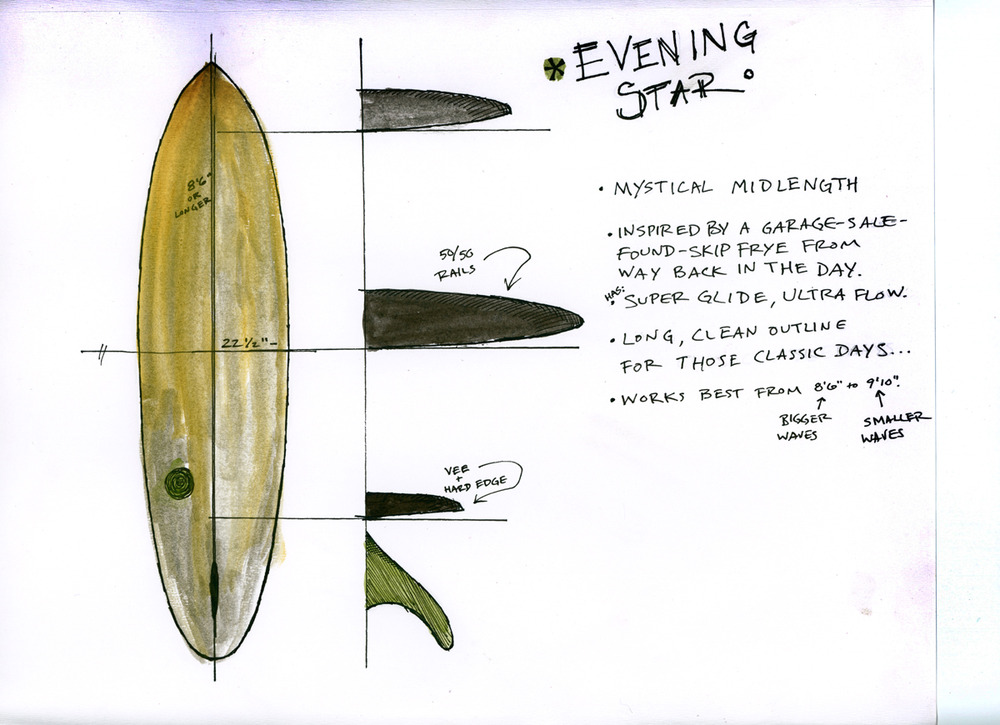 EVENING
STAR
8'6"
OR
LONGER
22 1/2"
50/50
RAILS
VEE
+
HARD EDGE
• MYSTICAL MIDLENGTH
• INSPIRED BY A GARAGE-SALE-
FOUND-SKIP FRYE FROM
WAY BACK IN THE DAY.
HAS:
• SUPER GLIDE, ULTRA FLOW.
• LONG, CLEAN OUTLINE
FOR THOSE CLASSIC DAYS...
• WORKS BEST FROM 8'6" to 9'10".
BIGGER
WAVES
SMALLER
WAVES